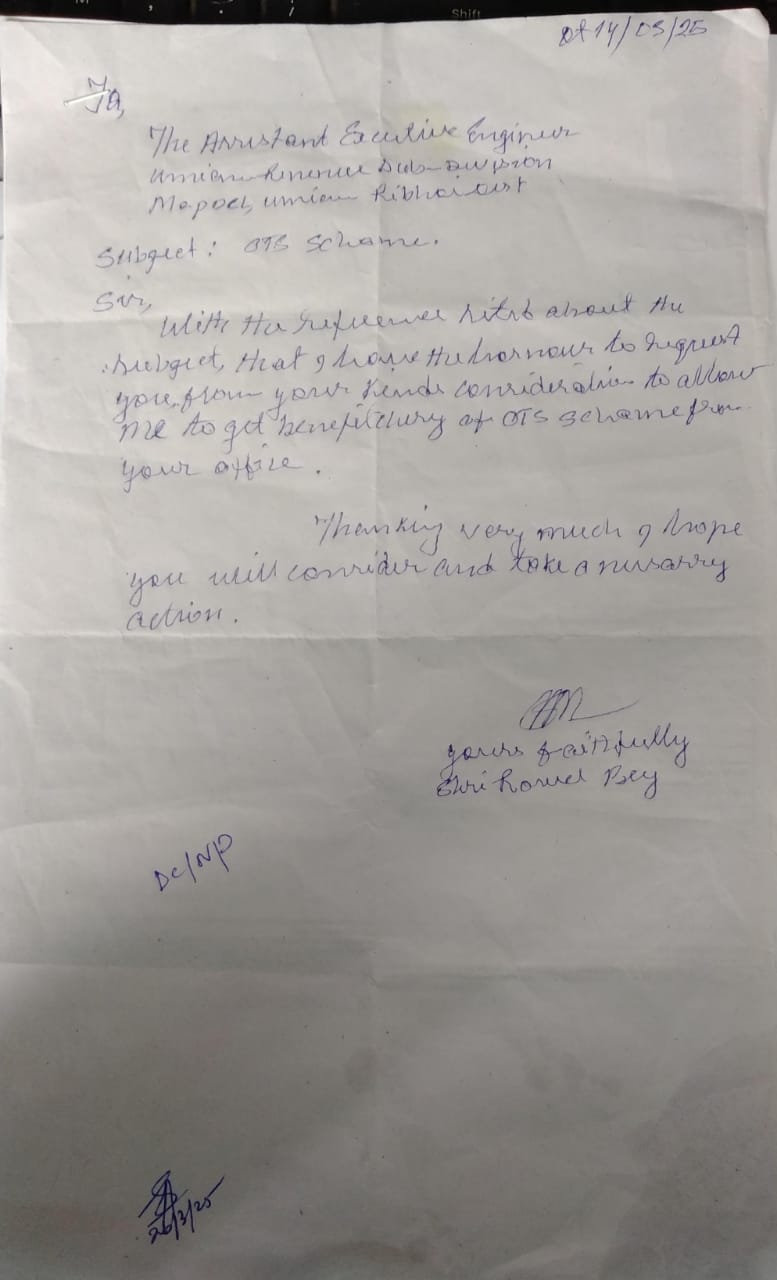 Dt 14/03/25
To,
The Assistant Excutive Engineer
Umiam Revenue Sub-division
Mapoel, Umiam Ribhoi Dist
Subgect: OTS Scheme.
Sir,
With the reference about the
Subgect, that I have the honour to request
you from your kinds consideration to allow
me to get benefitciary of OTS scheme from
your office.
Thanking very much I hope
you will consider and take a
action.
yours faithfully
Shri Bey
DC/NP
26/3/25